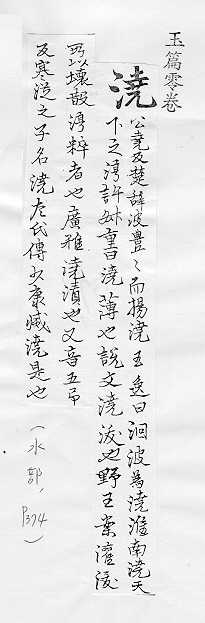 玉篇零卷
澆 公堯反楚辭波豊〻而揚澆王逸曰洄波為澆淮南澆天
下之淳許叔重曰澆薄也說文澆沃也野王案灌沃
所以壞散淳粹者也廣雅澆漬也又音五弔
反寒浞之子名澆左氏傳少康滅澆是也
（水部，P374）